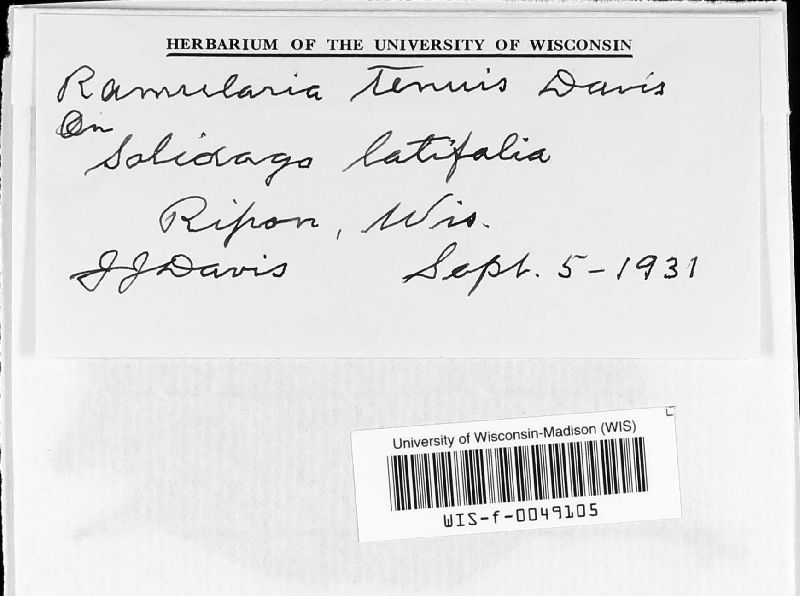 HERBARIUM OF THE UNIVERSITY OF WISCONSIN
Ramularia tenuis Davis
On
Solidago latifolia
Ripon, Wis.
J J Davis Sept. 5-1931
University of Wisconsin-Madison (WIS)
WIS-f-0049105